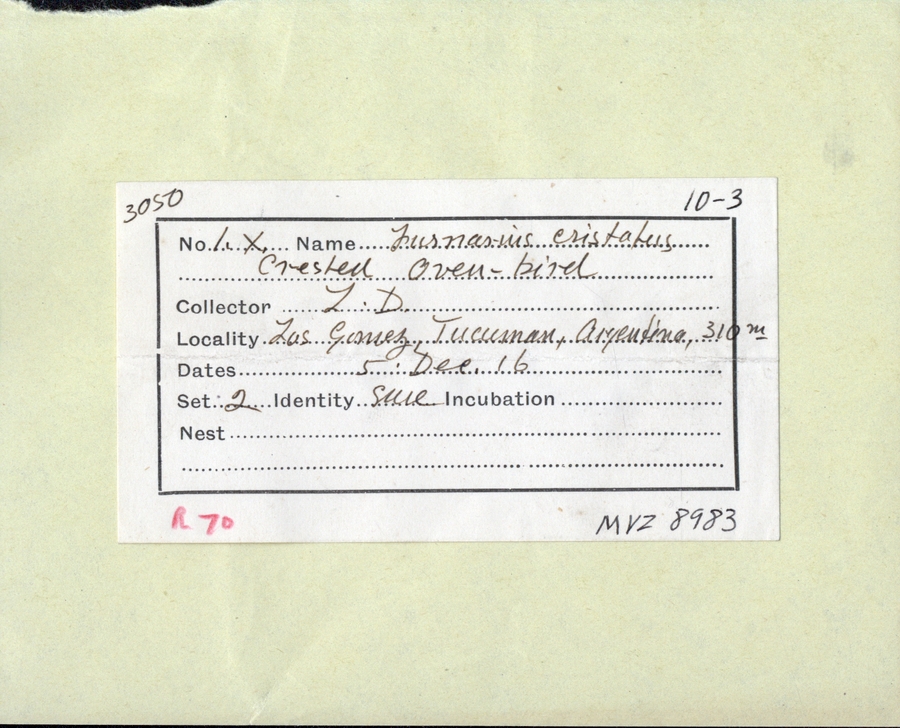 3050 10-3
No. 1. X. Name Furnarius cristatus
Crested Oven-bird
Collector L. D.
Locality Los Gomez, Tucuman, Argentina, 310 m
Dates 5. Dec. 16
Set 2 Identity sure Incubation
Nest
R 70 MVZ 8983